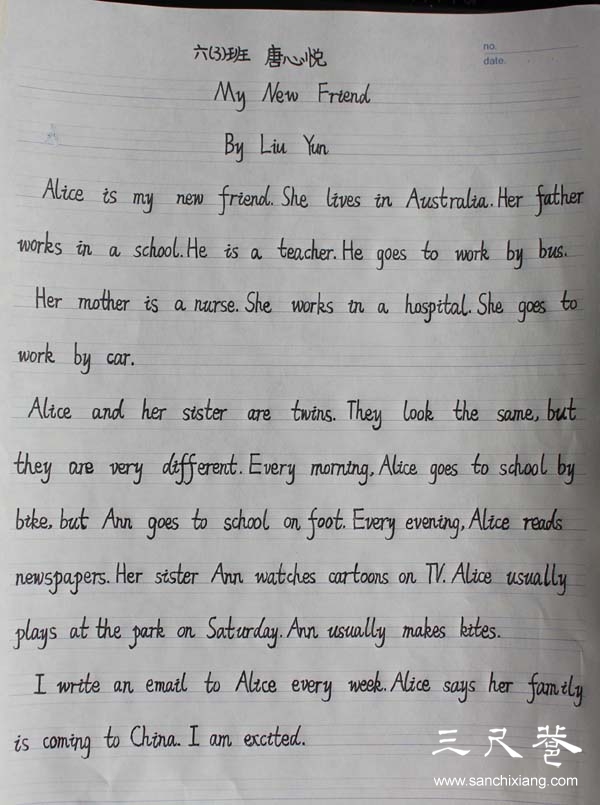 no.
date.
六(3)班 唐心悦
My New Friend
By Liu Yun
Alice is my new friend. She lives in Australia. Her father
works in a school. He is a teacher. He goes to work by bus.
Her mother is a nurse. She works in a hospital. She goes to
work by car.
Alice and her sister are twins. They look the same, but
they are very different. Every morning, Alice goes to school by
bike, but Ann goes to school on foot. Every evening, Alice reads
newspapers. Her sister Ann watches cartoons on TV. Alice usually
plays at the park on Saturday. Ann usually makes kites.
I write an email to Alice every week. Alice says her family
is coming to China. I am excited.
三尺
www.sanchixiang.com